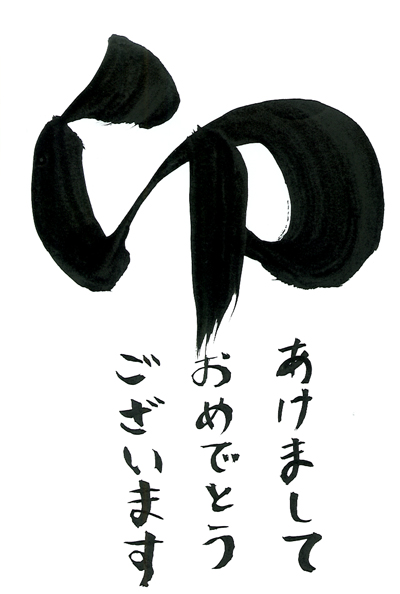 卯
あけまして
おめでとう
ございます